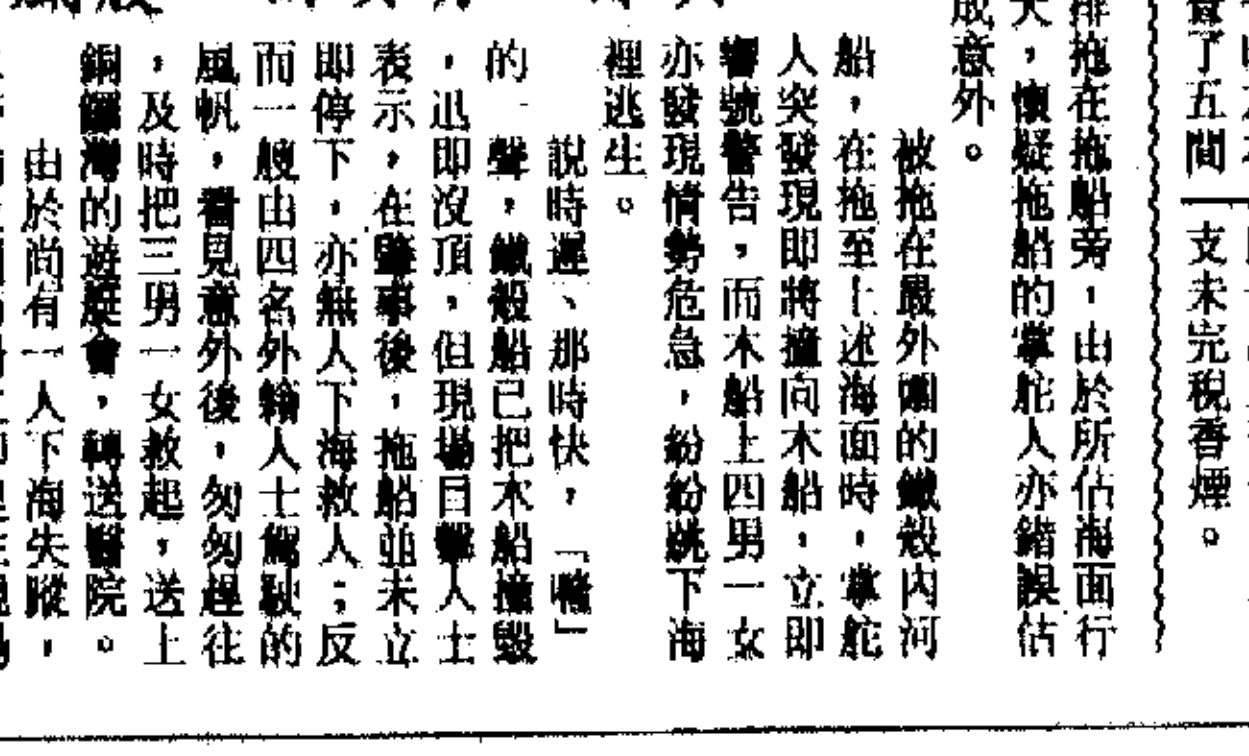 置了五間
支未完稅香煙。
排拖在拖船旁，由於所佔海面行
大，懷疑拖船的掌舵人亦錯誤估
成意外。
被拖在最外圍的鐵殼內河
船，在拖至上述海面時，掌舵
人突發現即將撞向木船，立即
響號警告，而木船上四男一女
亦發現情勢危急，紛紛跳下海
裡逃生。
說時遲、那時快，「嘭」
的一聲，鐵殼船已把木船撞毀
，迅即沒頂，但現場目擊人士
表示，在肇事後，拖船並未立
即停下，亦無人下海救人；反
而一艘由四名外輪人士駕駛的
風帆，看見意外後，匆匆趕往
，及時把三男一女救起，送上
銅鑼灣的遊艇會，轉送醫院。
由於尚有一人下海失蹤，